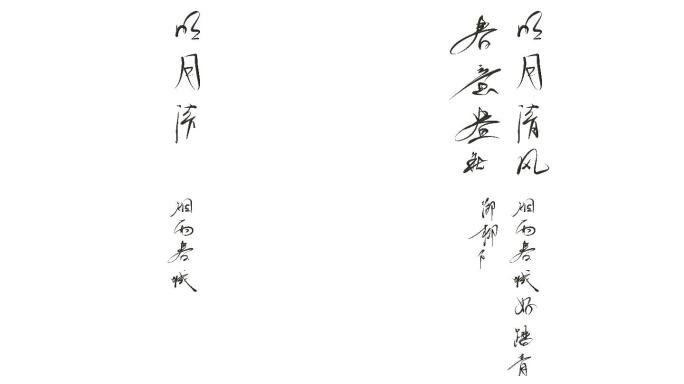 明月清风
春意盎然
烟雨春城好踏青
明月清
烟雨春城